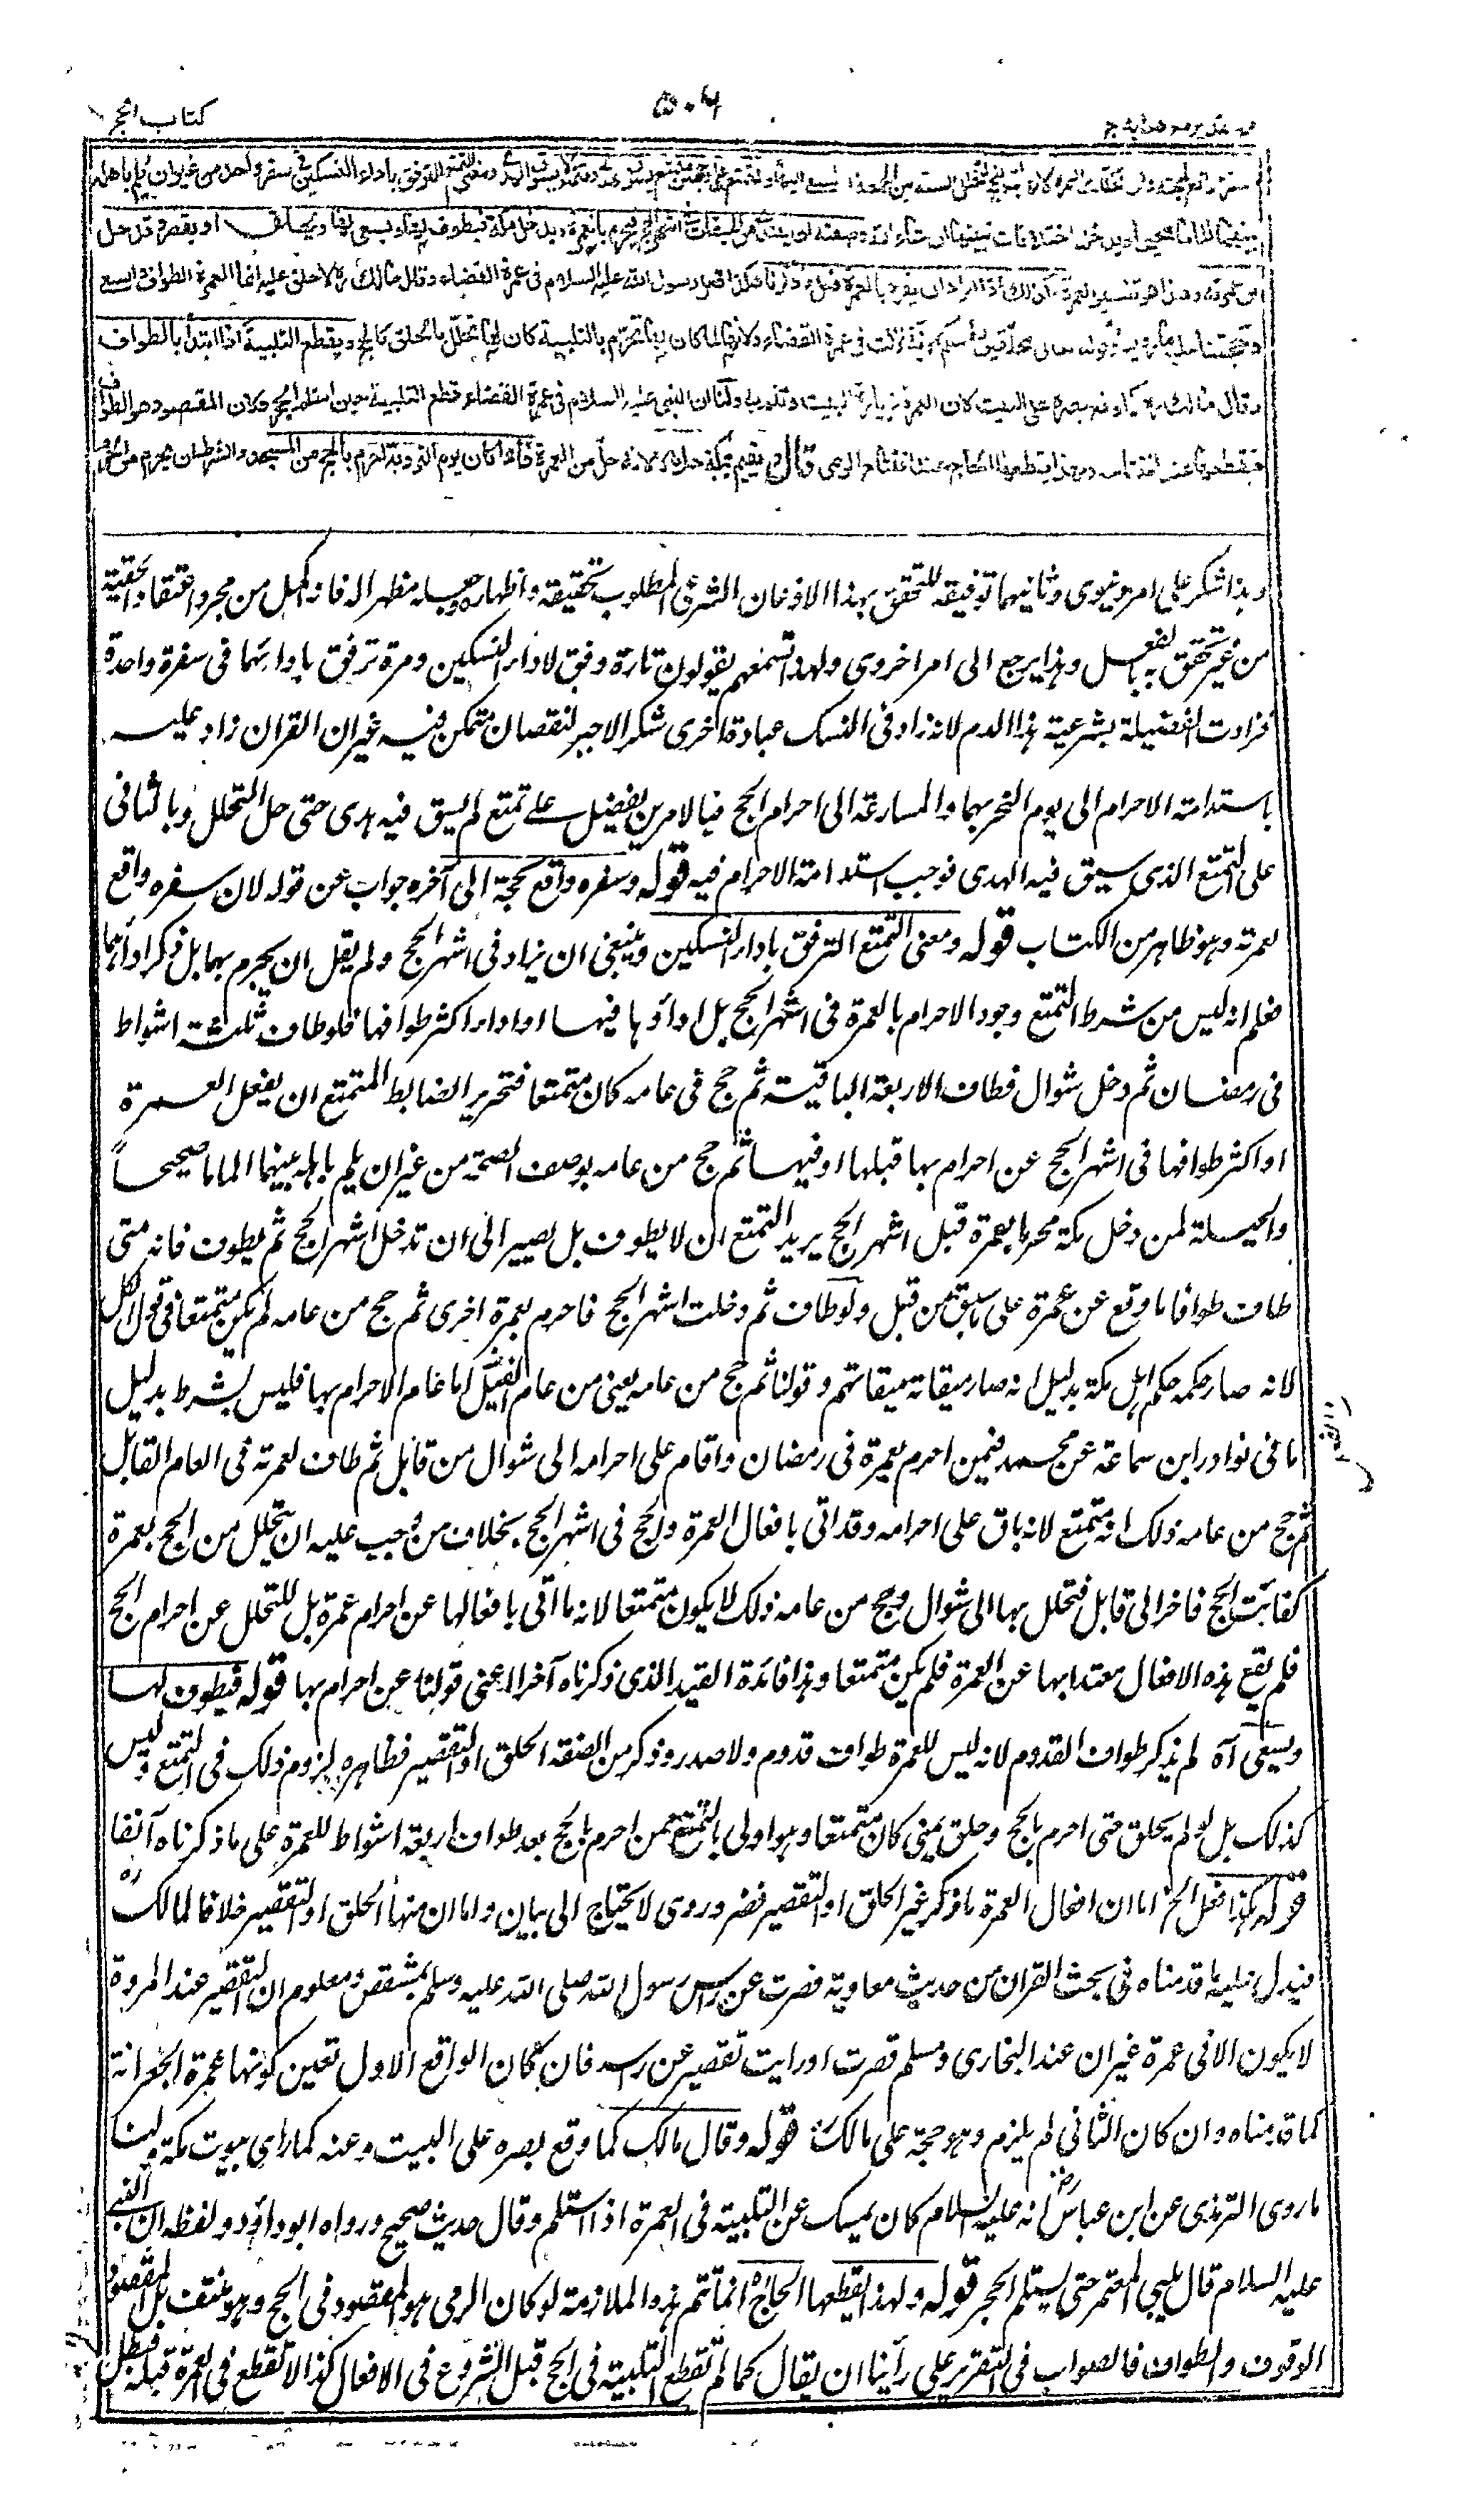 كتاب الحج
٥٠٦
فتح القدير مع هدايه ج ١
سفره واقع لحجته وان تخللت العمرة لانها تبع للحج كتخلل السنة بين الجمعة والسعي اليها والمتمتع على وجهين متمتع بسوق الهدي ومتمتع لا يسوق الهدي ومعنى التمتع الترفق باداء النسكين في سفر واحد من غير ان يلم باهله
بينهما الماما صحيحا ويدخله اختلافات نبينها ان شاء الله وصفته ان يبتدئ من الميقات في اشهر الحج فيحرم بالعمرة ويدخل مكة فيطوف لها ويسعى لها ويحلق او يقصر وقد حل
من عمرته وهذا هو تفسير العمرة وكذلك اذا اراد ان يفرد بالعمرة فعل ما ذكرنا هكذا فعل رسول الله عليه السلام في عمرة القضاء وقال مالك ره لا حلق عليه انما العمرة الطواف والسعي
وحجتنا عليه ما روينا وقوله تعالى محلقين رؤسكم الآية نزلت في عمرة القضاء ولانها لما كان لها تحرم بالتلبية كان لها تحلل بالحلق كالحج ويقطع التلبية اذا ابتدأ بالطواف
وقال مالك ره كما وقع بصره على البيت لان العمرة زيارة البيت وتتم به ولنا ان النبي عليه السلام في عمرة القضاء قطع التلبية حين استلم الحجر ولان المقصود هو الطواف
فيقطعها عند افتتاحه ولهذا يقطعها الحاج عند افتتاح الرمي قال ويقيم بمكة حلالا لانه حل من العمرة فاذا كان يوم التروية احرم بالحج من المسجد والشرط ان يحرم من الحرم
وهذا شكر على امر دنيوى وثانيهما توفيقه للتحقق بهذا الاذعان الشرعي المطلوب تحقيقه واظهاره وجعله مظهرا له فانه اكمل من مجرد اعتقاد الحقية
من غير تحقق به بالفعل وهذا يرجع الى امر اخروى ولهذا تسمعهم يقولون تارة وفق لاداء النسكين ومرة ترفق باداءهما فى سفرة واحدة
فزادت الفضيلة بشرعية هذا الدم لانه زاد فى النسك عبادة اخرى شكرا لا جبر لنقصان متمكن فيه غير ان القران زاد عليه
باستدامة الاحرام الى يوم النحر بهما والمسارعة الى احرام الحج فبالامرين يفضل على تمتع لم يسق فيه هدى حتى حل التحلل وبالثانى
على التمتع الذى سيق فيه الهدى فوجب استدامة الاحرام فيه قوله وسفره واقع لحجته الى آخره جواب عن قوله لان سفره واقع
لعمرته وهو ظاهر من الكتاب قوله ومعنى التمتع الترفق باداء النسكين وينبغى ان يزاد فى اشهر الحج ولم يقل ان يحرم بهما بل ذكر اداءهما
فعلم انه ليس من شرط التمتع وجود الاحرام بالعمرة فى اشهر الحج بل اداؤها فيها او اداء اكثر طوافها فلو طاف ثلثة اشواط
فى رمضان ثم دخل شوال فطاف الاربعة الباقية ثم حج فى عامه كان متمتعا فتحرير الضابط المتمتع ان يفعل العمرة
او اكثر طوافها فى اشهر الحج عن احرام بها قبلها او فيها ثم حج من عامه بوصف الصحة من غير ان يلم باهله بينهما الماما صحيحا
والحيلة لمن دخل مكة محرما بعمرة قبل اشهر الحج يريد التمتع ان لا يطوف بل يصبر الى ان تدخل اشهر الحج ثم يطوف فانه متى
طاف طوافا ما وقع عن عمرة على ما سبق من قبل ولو طاف ثم دخلت اشهر الحج فاحرم بعمرة اخرى ثم حج من عامه لم يكن متمتعا فى قول الكل
لانه صار حكمه حكم اهل مكة بدليل انه صار ميقاته ميقاتهم وقولنا ثم حج من عامه يعنى من عام الفعل اما عام الاحرام بها فليس بشرط بدليل
ما فى نوادر ابن سماعة عن محمد فيمن احرم بعمرة فى رمضان واقام على احرامه الى شوال من قابل ثم طاف لعمرته فى العام القابل
ثم حج من عامه ذلك انه متمتع لانه باق على احرامه وقد اتى بافعال العمرة والحج فى اشهر الحج بخلاف من وجب عليه ان يتحلل من الحج بعمرة
كفائت الحج فاخر الى قابل فتحلل بها الى شوال وحج من عامه ذلك لا يكون متمتعا لانه ما اتى بافعالها عن احرام عمرة بل للتحلل عن احرام الحج
فلم يقع هذه الافعال معتدا بها عن العمرة فلم يكن متمتعا وهذا فائدة القيد الذى ذكرناه آخرا اعنى قولنا عن احرام بها قوله فيطوف لها
ويسعى آه لم يذكر طواف القدوم لانه ليس للعمرة طواف قدوم ولا صدر وذكر من الصفة الحلق او التقصير فظاهره لزوم ذلك فى التمتع وليس
كذلك بل لو لم يحلق حتى احرم بالحج وحلق بمنى كان متمتعا وهو اولى بالتمتع ممن احرم بالحج بعد طواف اربعة اشواط للعمرة على ما ذكرناه آنفا
قوله هكذا فعل الخ اما ان افعال العمرة ما ذكر غير الحلق او التقصير فضرورى لا يحتاج الى بيان واما ان منها الحلق او التقصير خلافا لمالك ره
فيدل عليه ما قدمناه فى بحث القران من حديث معاوية قصرت عن رأس رسول الله صلى الله عليه وسلم بمشقص ومعلوم ان التقصير عند المروة
لا يكون الا فى عمرة غير ان عند البخارى ومسلم قصرت او رأيت تقصير عن رأسه فان كان الواقع الاول تعين كونها عمرة الجعرانة
كما قدمناه وان كان الثانى لم يلزم وهو حجة على مالك ره قوله وقال مالك كما وقع بصره على البيت وعنه كما رأى بيوت مكة ولنا
ما روى الترمذى عن ابن عباس رض انه عليه السلام كان يمسك عن التلبية فى العمرة اذا استلم وقال حديث صحيح ورواه ابو داؤد ولفظه ان النبى
عليه السلام قال يلبى المعتمر حتى يستلم الحجر قوله ولهذا يقطعها الحاج اه انما تتم هذه الملازمة لو كان الرمى هو المقصود فى الحج وهو منتف بل المقصود
الوقوف والطواف فالصواب فى التقرير على رأينا ان يقال كما لم تقطع التلبية فى الحج قبل الشروع فى الافعال كذا لا تقطع فى العمرة قبله فيبطل